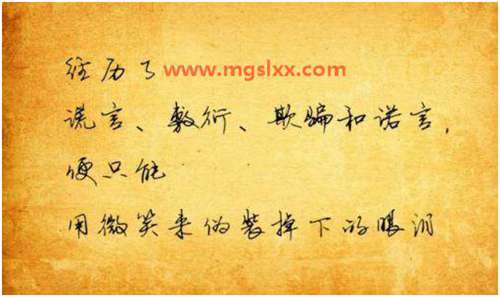 经历了 www.mgslxx.com
谎言、敷衍、欺骗和诺言,
便只能
用微笑来伪装掉下的眼泪